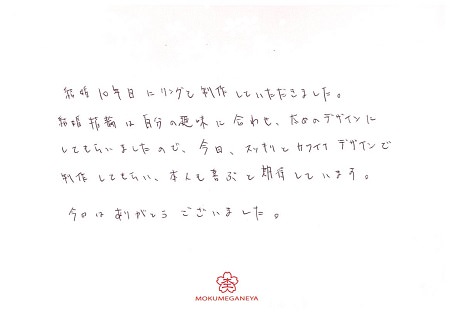 結婚10年目にリングを制作していただきました。
結婚指輪は自分の趣味に合わせ、太めのデザインに
してもらいましたので、今回、スッキリとカワイイデザインで
制作してもらい、本人も喜ぶと期待しています。
今日はありがとうございました。
MOKUMEGANEYA